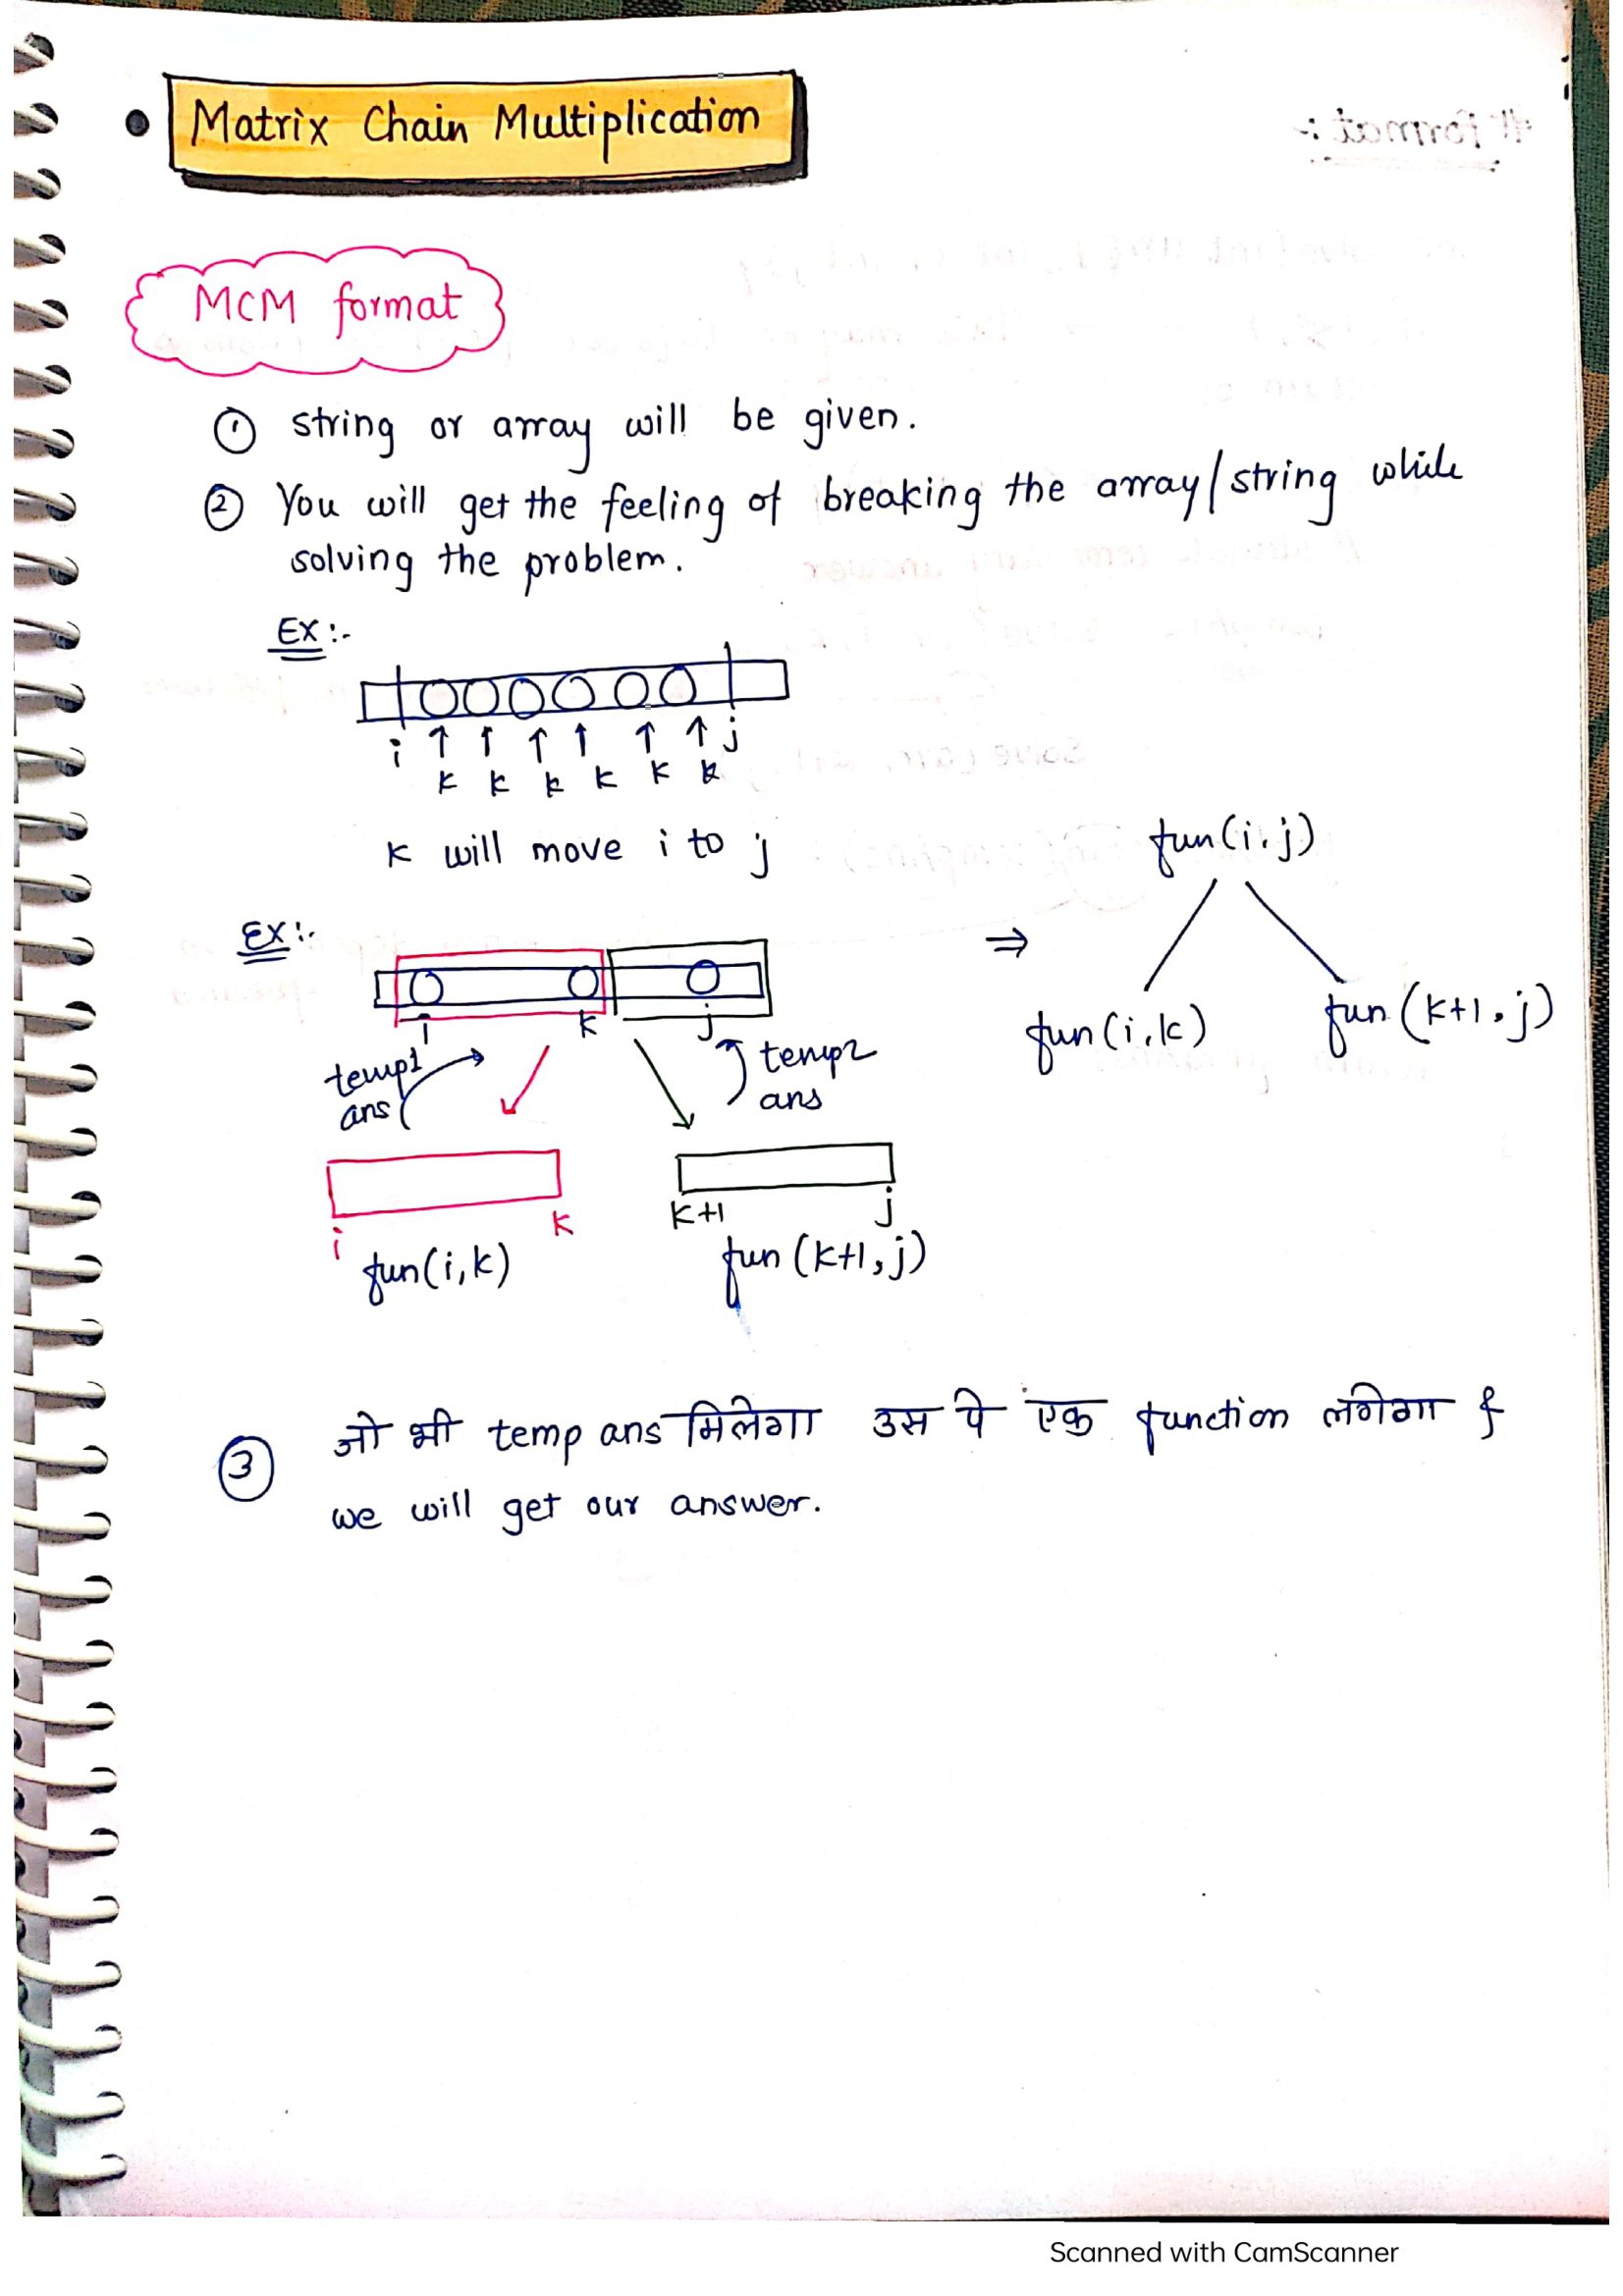 Matrix Chain Multiplication
MCM format
① string or array will be given.
② You will get the feeling of breaking the array/string while
solving the problem.
EX :-
i ↑ ↑ ↑ ↑ ↑ ↑ j
k k k k k k
k will move i to j
fun(i,j)
EX :-
⇒
fun(i,k) fun(k+1,j)
i k j
temp1
ans
temp2
ans
i k
k+1 j
fun(i,k) fun(k+1,j)
③ जो भी temp ans मिलेगा उस पे एक function लगेगा &
we will get our answer.
# format :-
Scanned with CamScanner